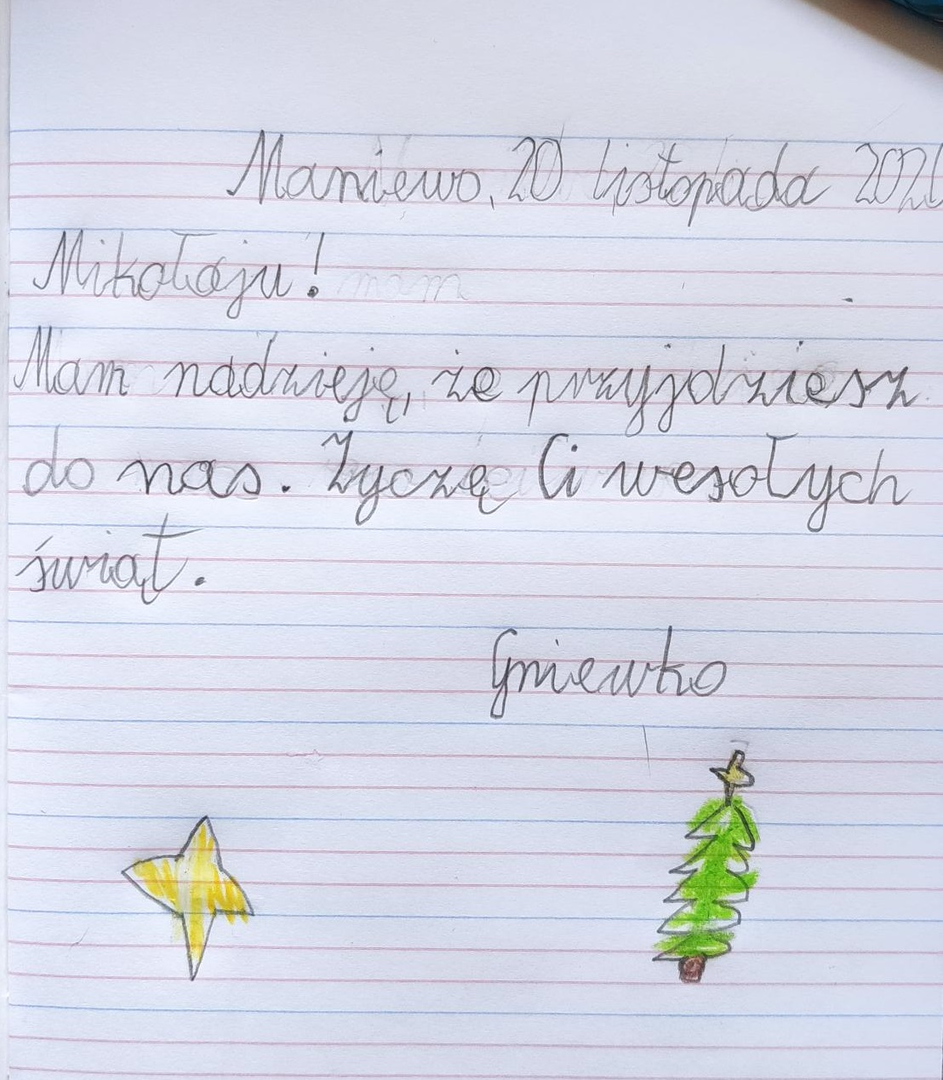 Maniewo, 20 listopada 2020
Mikołaju!
Mam nadzieję, że przyjdziesz
do nas. Życzę Ci wesołych
świąt.
Gniewko